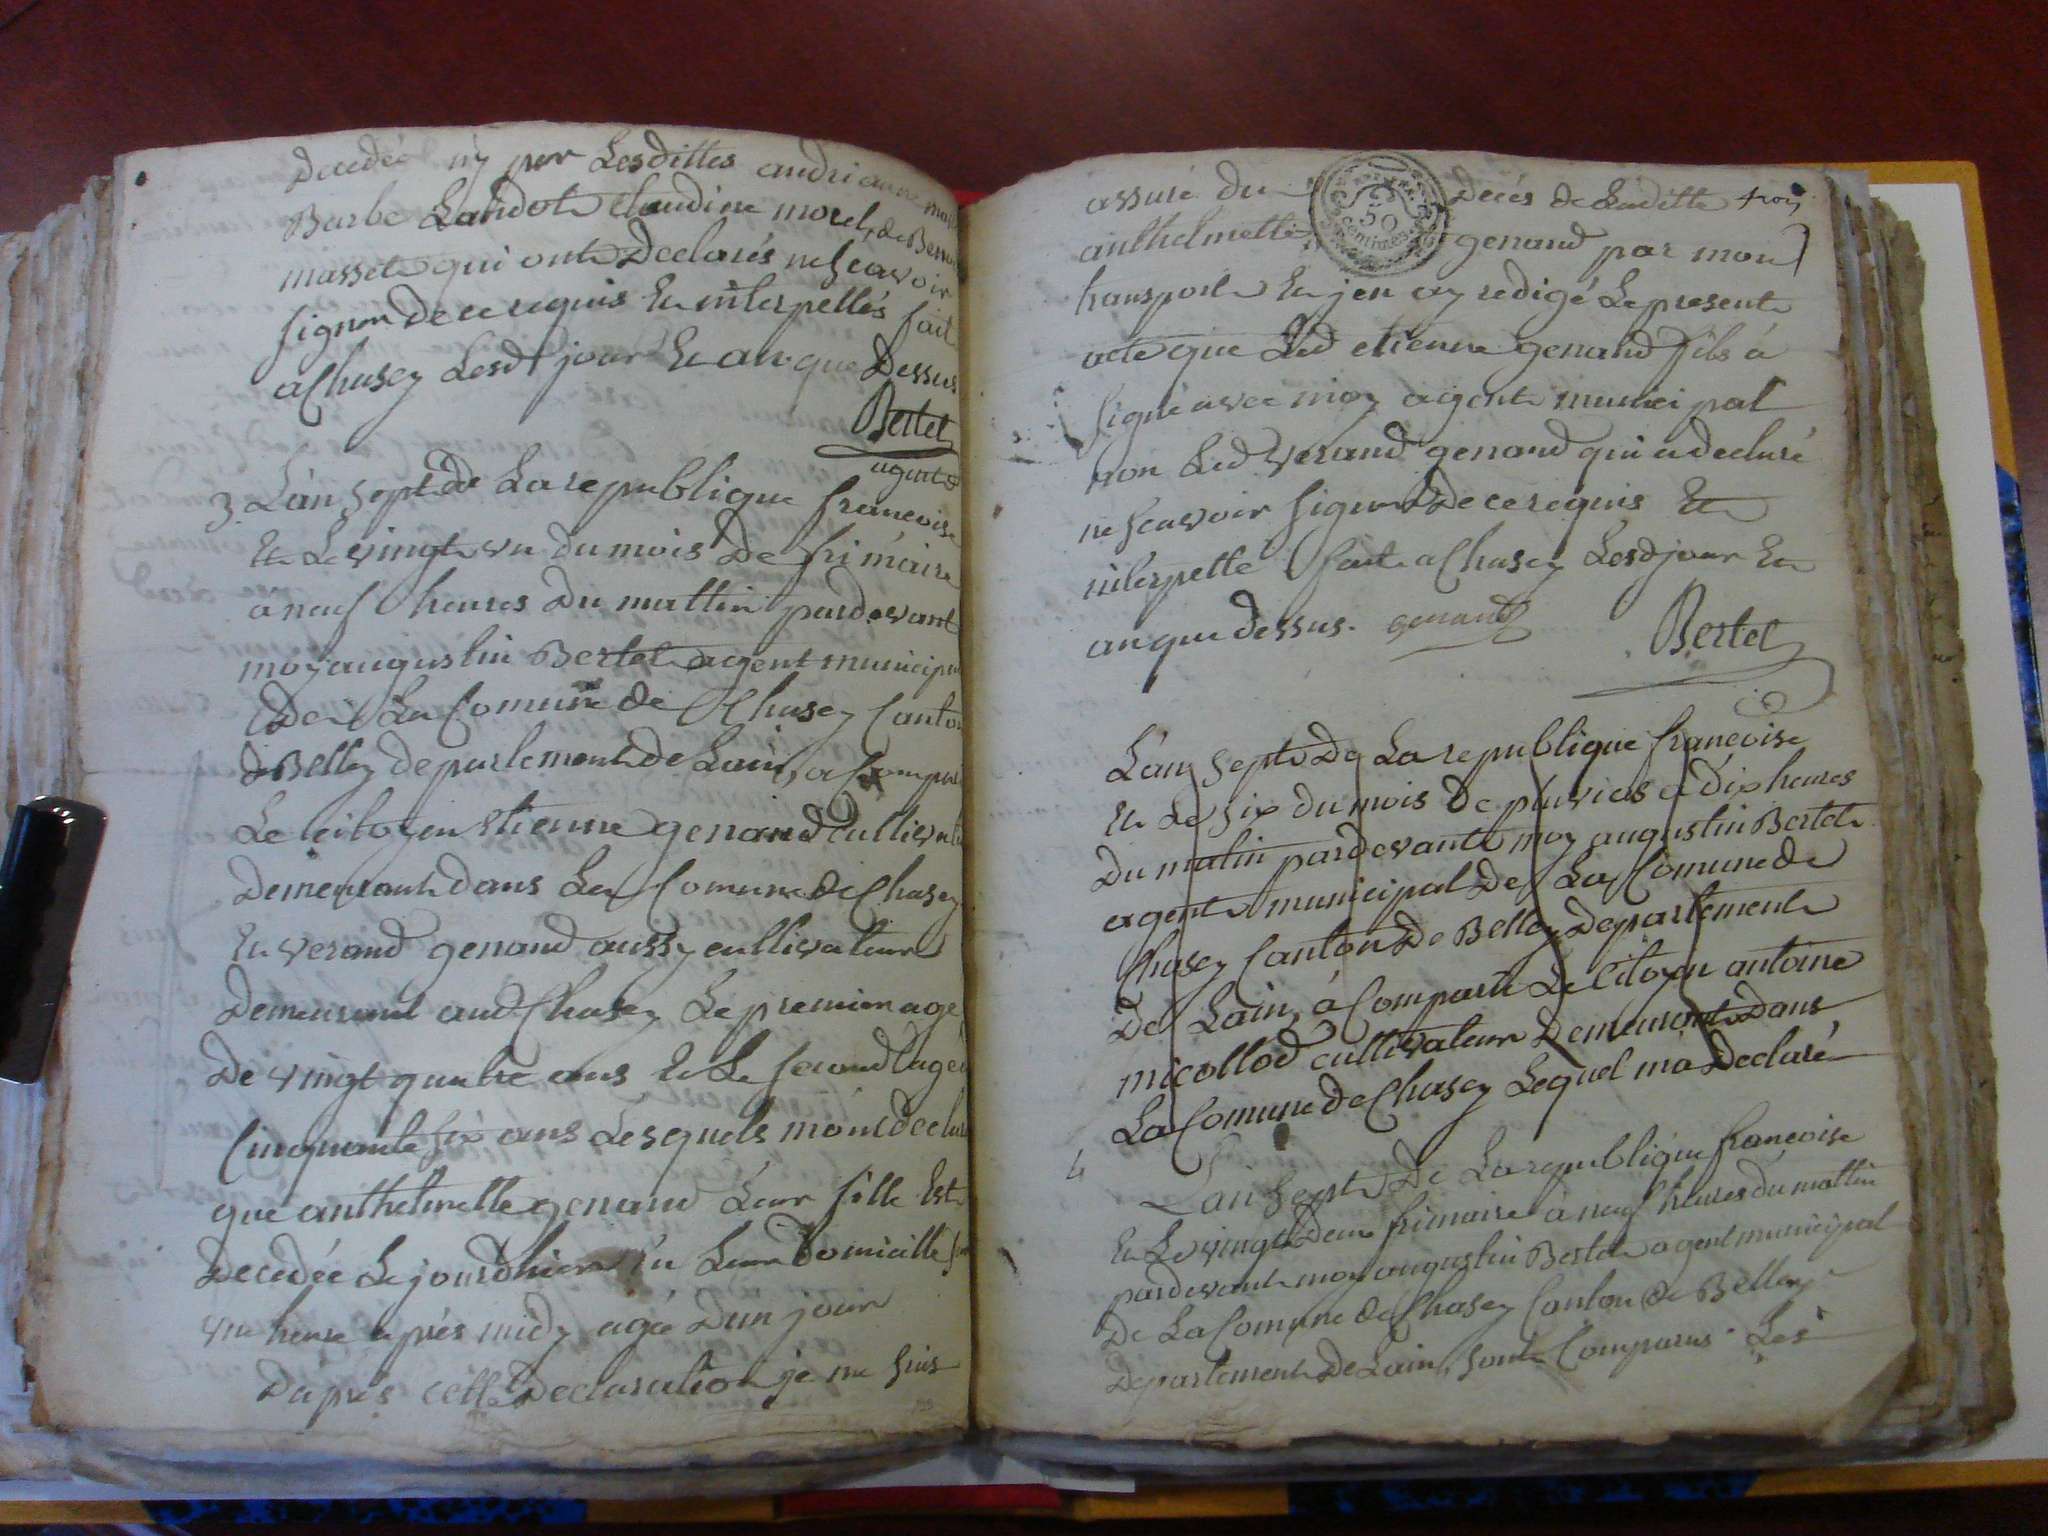 Decedée ny par Lesdittes andrianne
Barbe Landot claudine morel, de
masset qui ont Declarés ne scavoir
signer De ce requis Et interpellés fait
a Chasey Lesd jour Et an que Dessus
Bertet
agent
3. L'an sept de La republique francoise
Et Le vingt un du mois De frimaire
a neuf heures Du mattin pardevant
moy augustin Bertet agent municipal
De La Comune de Chasey Canton
de Belley departement de Lain, a Compar
Le citoyen etienne genand cultivat
Demeurant dans La Comune de Chasey
Et verand genand aussy cultivateur
Demeurant aud Chasey Le premier age
De vingt quatre ans Et Le second age
Cinquante six ans Lesquels m'ont declar
que anthelmette genand Leur fille Est
Decedée Le jourdhier En Leur Domicille
une heure après midy agée D'un jour
Dapres cette Declaration je me suis
assuré du Decés de Laditte trois
50
centimes
anthelmette genand par mon
transport Et jen ay redigé Le present
acte que Led etienne genand fils à
signé avec moy agent municipal
non Led verand genand qui a declaré
ne scavoir signer De ce requis Et
interpellé fait a Chasey Lesd jour Et
an que dessus. genand
Bertet
L'an sept De La republique francoise
Et Le six du mois De pluvios a dix heures
Du matin pardevant moy augustin Bertet
agent municipal De La Comune de
Chasey Canton De Belley Departement
De Lain, à Comparu Le Citoyen antoine
micollod cultivateur Demeurant Dans
La Comune de Chasey Lequel m'a Declaré
4 L'an sept De La republique francoise
Et Le vingt Deux frimaire à neuf heures du mattin
pardevant moy augustin Bertet agent municipal
De La Comune de Chasey Canton de Belley
Departement De Lain, sont Comparus Les